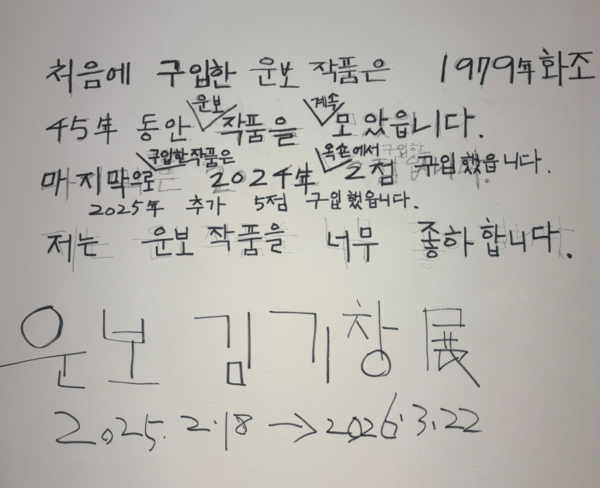 처음에 구입한 운보 작품은 1979年 화조
45年 동안 운보 작품을 계속 모았읍니다.
마지막으로 구입한 작품은 2024年 옥션에서 2점 구입했읍니다.
2025年 추가 5점 구입했읍니다.
저는 운보 작품을 너무 좋하합니다.
운보 김기창 展
2025. 2.18 → 2026.3.22